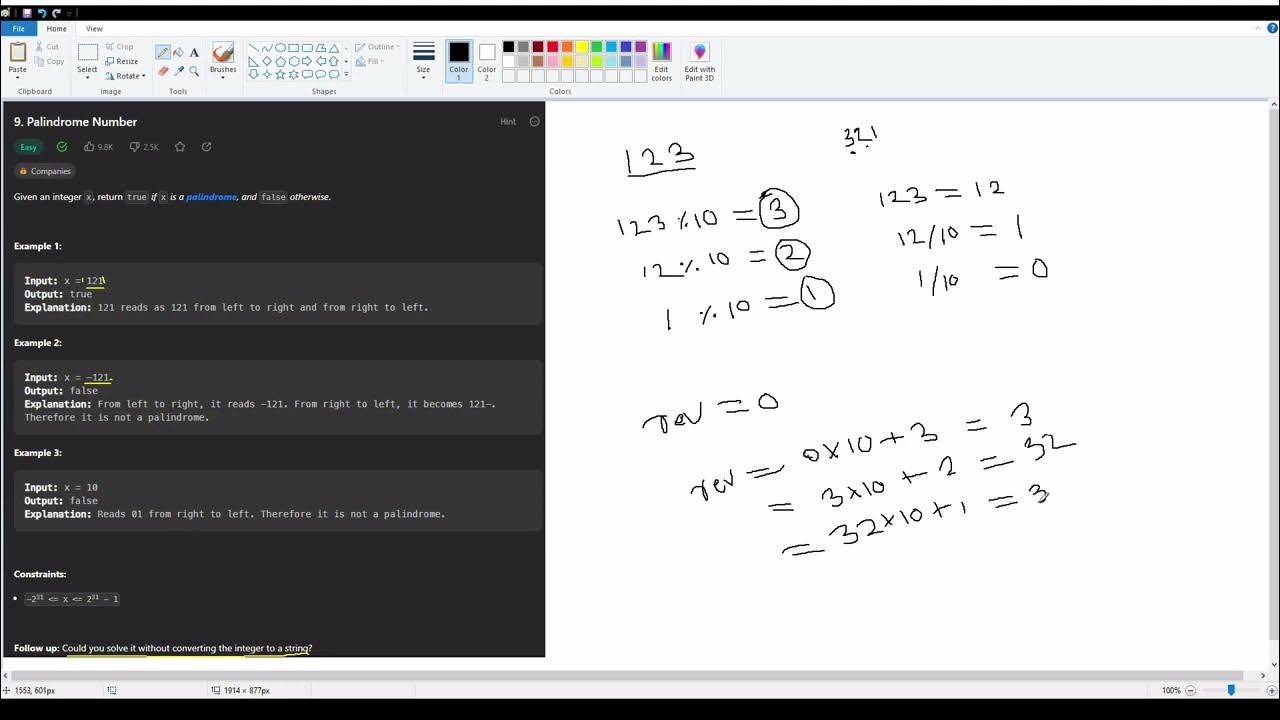 File
Home
View
Paste
Cut
Copy
Clipboard
Select
Crop
Resize
Rotate
Image
A
Tools
Brushes
Shapes
Outline
Fill
Size
Color 1
Color 2
Edit colors
Colors
Edit with Paint 3D
9. Palindrome Number
Hint
Easy
9.8K
2.5K
Companies
Given an integer x, return true if x is a palindrome, and false otherwise.
Example 1:
Input: x = 121
Output: true
Explanation: 121 reads as 121 from left to right and from right to left.
Example 2:
Input: x = -121
Output: false
Explanation: From left to right, it reads -121. From right to left, it becomes 121-.
Therefore it is not a palindrome.
Example 3:
Input: x = 10
Output: false
Explanation: Reads 01 from right to left. Therefore it is not a palindrome.
Constraints:
-2³¹ <= x <= 2³¹ - 1
Follow up: Could you solve it without converting the integer to a string?
123
321
123 % 10 = 3
12 % 10 = 2
1 % 10 = 1
123 = 12
12/10 = 1
1/10 = 0
rev = 0
rev = 0×10+3 = 3
= 3×10 + 2 = 32
= 32×10+1 = 3
1553, 601px
1914 × 877px
100%